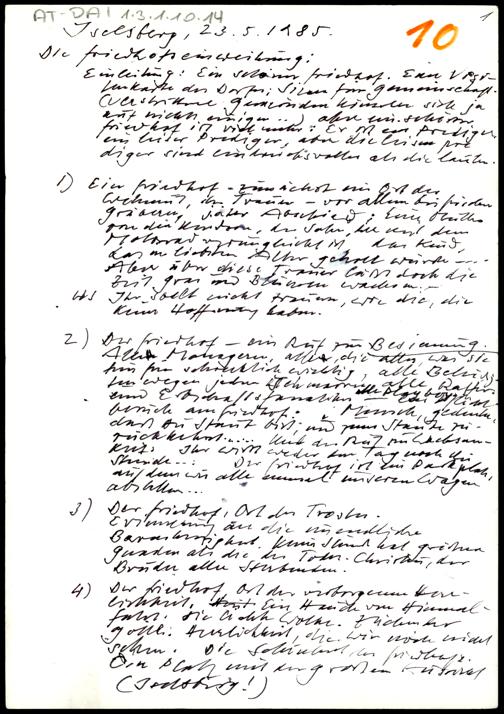 AT-DAI 1.3.1.10.14
1
10
Iselsberg, 23.5.1985.
Die Friedhofseinweihung:
Einleitung: Ein schöner Friedhof. Eine Visi-
tenkarte des Dorfes; Sinn für Gemeinschaft.
(Zerstrittene Gemeinden können sich ja
auf nichts einigen...) aber ein schöner
Friedhof ist viel mehr: Er ist ein Prediger
ein leiser Prediger, aber die leisen Pre
diger sind eindrucksvoller als die lauten.
1) Ein Friedhof - zunächst ein Ort der
Wehmut, der Trauer - vor allem bei frischen
Gräbern, später Abschied; Eine Mutter
von den Kindern, der Sohn, der mit dem
Motorrad verunglückt ist, das Kind,
das im liebsten Alter geholt wurde ...
Aber über diese Trauer läßt doch die
Zeit Gras und Blumen wachsen. -
Ihr sollt nicht trauern, wie die, die
keine Hoffnung haben.
2) Der Friedhof - ein Ruf zur Besinnung.
Alle Managern, alle, die alles, was sie
tun für schrecklich wichtig, alle
wegen jedem alle
und Erbschaftsfanatiker
am Friedhof: Mensch, gedenke,
daß du Staub bist, und zum Staube zu-
rückkehrst..... Und der Ruf zur Wachsam-
keit: Ihr wißt weder den Tag noch die
Stunde...: Der Friedhof ist ein Parkplatz,
auf dem wir alle einmal unseren Wagen
abstellen...
3) Der Friedhof, Ort des Trostes.
Erinnerung an die unendliche
Barmherzigkeit. Keine Stunde hat größere
Gnaden als die des Todes. Christus, der
Bruder aller Sterbenden.
4) Der Friedhof, Ort der verborgenen Herr-
lichkeit. Ein Hauch von Himmel-
fahrt. Die lichte Wolke. Zeichen der
göttl. Herrlichkeit, die wir noch nicht
sehen. Die Schönheit des Friedhofs.
Ein Platz mit der großen Aussicht
(Iselsberg!)